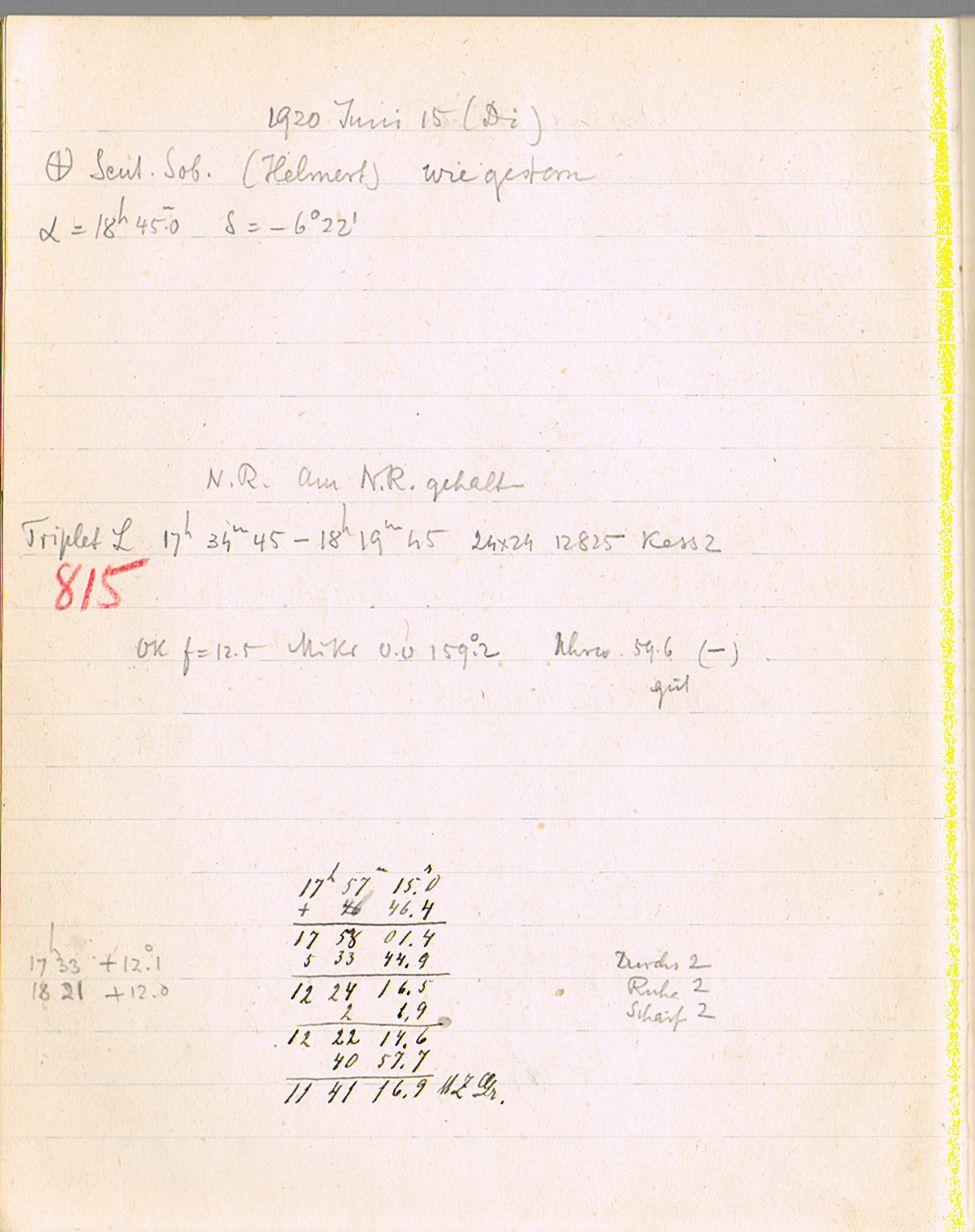 1920 Juni 15 (Di)
⊕ Scut. Sob. (Helmert) wie gestern
α = 18ʰ 45ᵐ.0 δ = −6°22'
N.R. am N.R. gehalt
Triplet L 17ʰ 34ᵐ 45 − 18ʰ 19ᵐ 45 24x24 12825 Kass 2
815
OK f=12.5 Mikr 0.0 159°.2 59.6 (−)
gut
17ʰ 57ᵐ 15ˢ.0
+ 46.4
17 58 01.4
5 33 44.9
17ʰ 33 +12°.1
12 24 16.5
18 21 +12.0
2 1,9
12 22 14.6
40 57.7
11 41 16.9 M Z Gr.
Durchs 2
Ruhe 2
Schärf 2